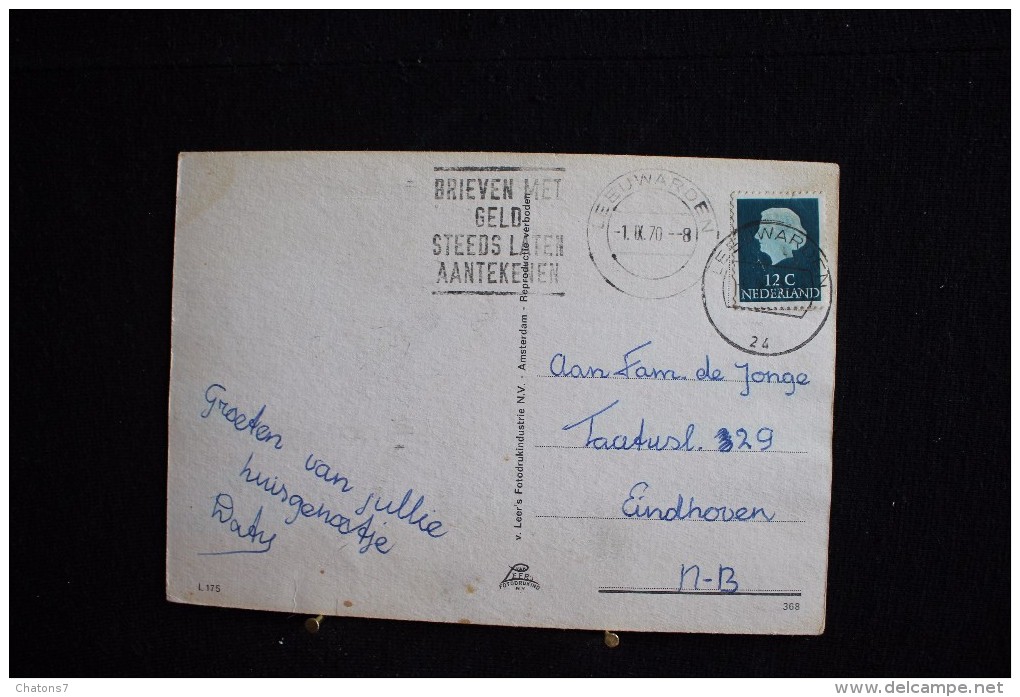 BRIEVEN MET
GELD
STEEDS LATEN
AANTEKENEN
LEEUWARDEN
-1.IX.70.--8
LEEUWARDEN
24
12 C
NEDERLAND
Groeten van jullie
huisgenootje
v. Leer's Fotodrukindustrie N.V. - Amsterdam - Reproductie verboden
Aan Fam. de Jonge
29
Eindhoven
N-B
L 175
FOTODRUKIND
N.V.
368
Chatons7
www.delcampe.net